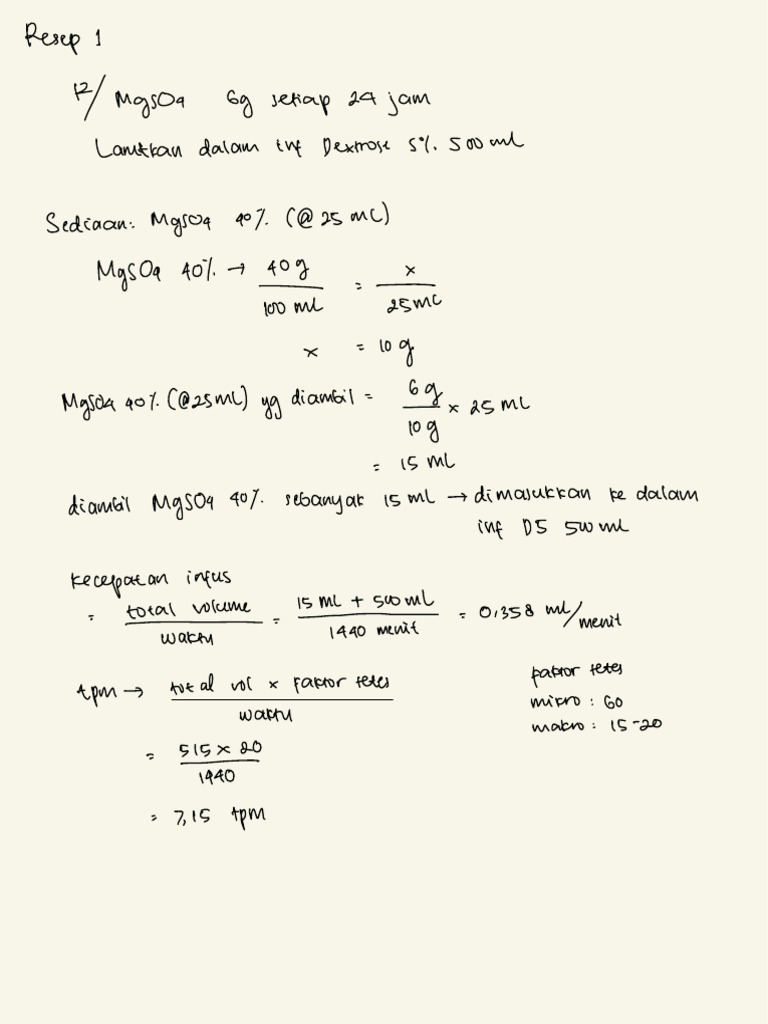 Resep 1
R/ MgSO4 6g setiap 24 jam
Larutkan dalam inf Dextrose 5% 500 ml
Sediaan: MgSO4 40% (@ 25 mL)
MgSO4 40% → 40 g / 100 ml = x / 25 mL
x = 10 g
MgSO4 40% (@25mL) yg diambil = 6 g / 10 g x 25 mL
= 15 mL
diambil MgSO4 40% sebanyak 15 mL → dimasukkan ke dalam
inf D5 500 ml
kecepatan infus
= total volume / waktu = 15 mL + 500 mL / 1440 menit = 0,358 ml/menit
tpm → total vol x faktor tetes / waktu
= 515 x 20 / 1440
= 7,15 tpm
faktor tetes
mikro : 60
makro : 15-20